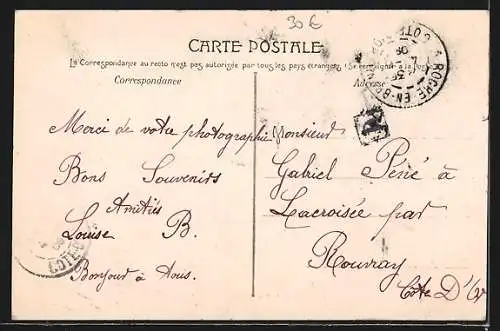 30 €
CARTE POSTALE
La Correspondance au recto n'est pas autorisée par tous les pays étrangers (Se renseigner à la Poste)
Correspondance
Adresse
LA ROCHE-EN-BRENIL
COTE D'OR
Merci de votre photographie
Bons Souvenirs
Amitiés
Louise B.
Bonjour à tous.
COTE
Monsieur
Gabriel Péné à
Lacroisée par
Rouvray
Côte D'Or